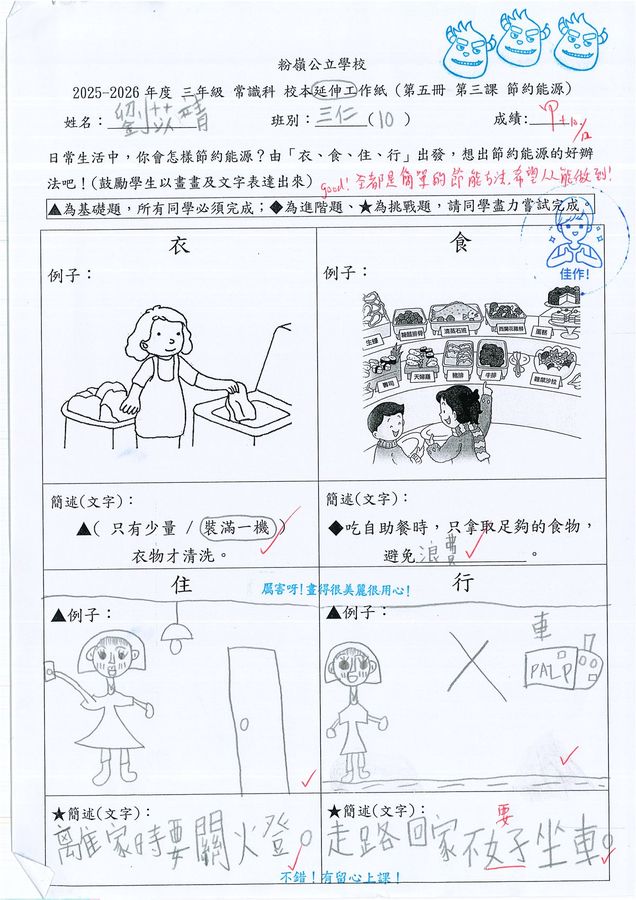 粉嶺公立學校
2025-2026 年度 三年級 常識科 校本延伸工作紙 (第五冊 第三課 節約能源)
姓名: 劉 班別: 三仁 (10) 成績: 甲+
日常生活中,你會怎樣節約能源?由「衣、食、住、行」出發,想出節約能源的好辦
法吧!(鼓勵學生以畫畫及文字表達出來) good! 全都是簡單的節能方法,希望人人能做到!
▲為基礎題,所有同學必須完成;◆為進階題、★為挑戰題,請同學盡力嘗試完成。
佳作!
衣 食
例子: 例子:
生蠔
清蒸石斑
蛋糕
壽司
天婦羅
豬排
牛排
雜菜沙拉
簡述(文字): 簡述(文字):
▲( 只有少量 / 裝滿一機 ) ◆吃自助餐時,只拿取足夠的食物,
衣物才清洗。 避免浪費。
厲害呀!畫得很美麗很用心!
住 行
▲例子: ▲例子:
車
PALP
★簡述(文字): ★簡述(文字):
要
離家時要關火登。 走路回家不好坐車。
不錯!有留心上課!